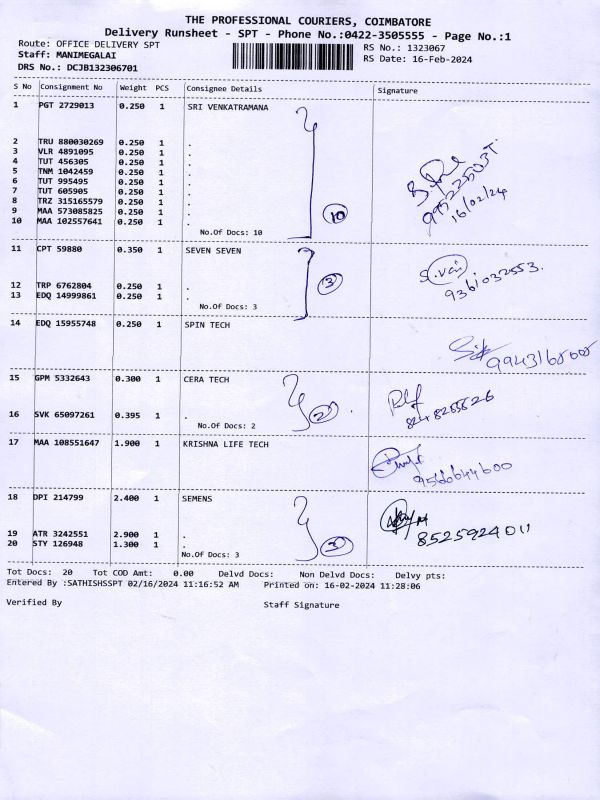 THE PROFESSIONAL COURIERS, COIMBATORE
Delivery Runsheet - SPT - Phone No.:0422-3505555 - Page No.:1
Route: OFFICE DELIVERY SPT RS No.: 1323067
Staff: MANIMEGALAI RS Date: 16-Feb-2024
DRS No.: DCJB132306701
S No Consignment No Weight PCS Consignee Details Signature
1 PGT 2729013 0.250 1 SRI VENKATRAMANA
2 TRU 880030269 0.250 1 .
3 VLR 4891095 0.250 1 .
4 TUT 456305 0.250 1 .
5 TNM 1042459 0.250 1 .
6 TUT 995495 0.250 1 .
7 TUT 605905 0.250 1 .
8 TRZ 315165579 0.250 1 .
9 MAA 573085825 0.250 1 .
10 MAA 102557641 0.250 1 .
No.Of Docs: 10
10
16/02/24
11 CPT 59880 0.350 1 SEVEN SEVEN
12 TRP 6762804 0.250 1 .
13 EDQ 14999861 0.250 1 .
No.Of Docs: 3
3
9361032553.
14 EDQ 15955748 0.250 1 SPIN TECH
15 GPM 5332643 0.300 1 CERA TECH
16 SVK 65097261 0.395 1 .
No.Of Docs: 2
2
17 MAA 108551647 1.900 1 KRISHNA LIFE TECH
9566644600
18 DPI 214799 2.400 1 SEMENS
19 ATR 3242551 2.900 1 .
20 STY 126948 1.300 1 .
No.Of Docs: 3
3
8525924011
Tot Docs: 20 Tot COD Amt: 0.00 Delvd Docs: Non Delvd Docs: Delvy pts:
Entered By :SATHISHSSPT 02/16/2024 11:16:52 AM Printed on: 16-02-2024 11:28:06
Verified By Staff Signature